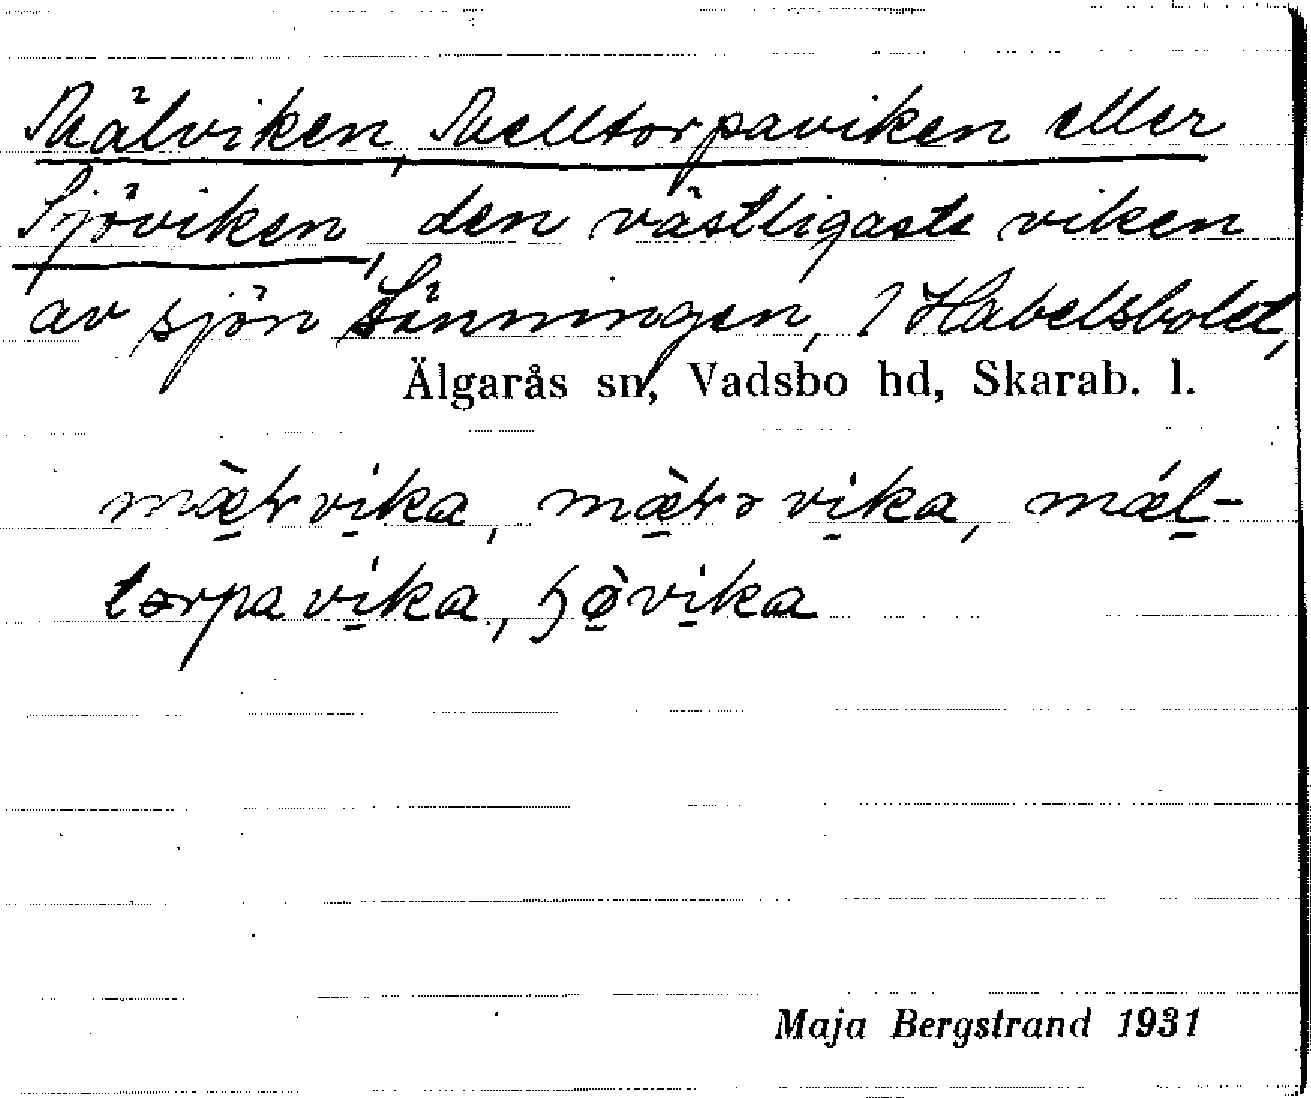 Mälviken, Melltorpaviken eller
Sjöviken, den västligaste viken
av sjön Länningen, 1 Habelsbolet,
Älgarås sn, Vadsbo hd, Skarab. l.
mæ̀ɽvíka, mæ̀ɽəvíka, mǽl-
tɔrpavíka, ɧø̀víka
Maja Bergstrand 1931